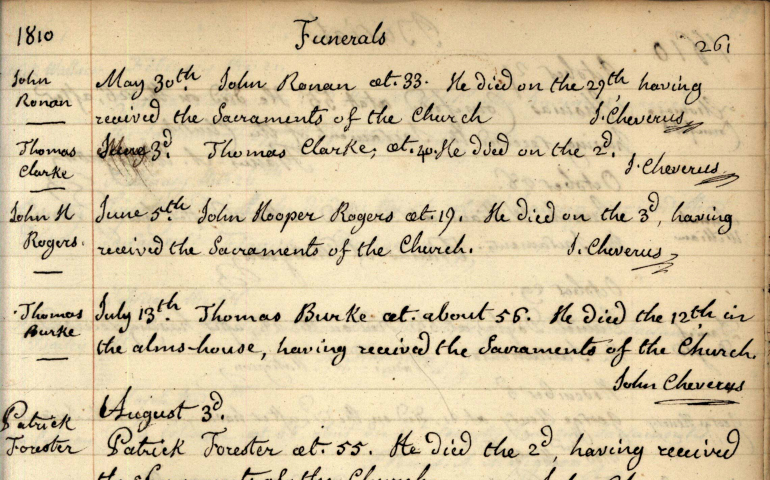 1810 Funerals 261
John Ronan
May 30th. John Ronan æt. 33. He died on the 29th, having
received the Sacraments of the Church J. Cheverus
Thomas Clarke
June 3d. Thomas Clarke, æt. 40. He died on the 2d.
J. Cheverus
John H Rogers.
June 5th. John Hooper Rogers æt. 19. He died on the 3d, having
received the Sacraments of the Church. J. Cheverus
Thomas Burke
July 13th. Thomas Burke æt. about 56. He died the 12th in
the alms-house, having received the Sacraments of the Church.
John Cheverus
August 3d.
Patrick Forester
Patrick Forester æt. 55. He died the 2d, having received
the Sacraments of the Church